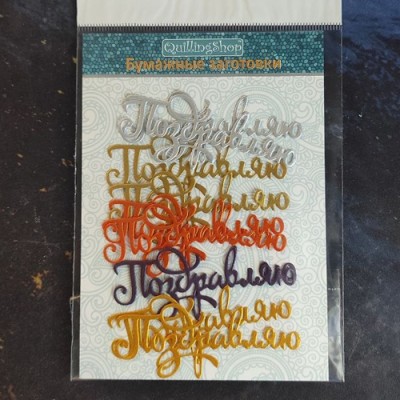 QuillingShop
Бумажные заготовки
Поздравляю
Поздравляю
Поздравляю
Поздравляю
Поздравляю
Поздравляю
Поздравляю
Поздравляю
Поздравляю